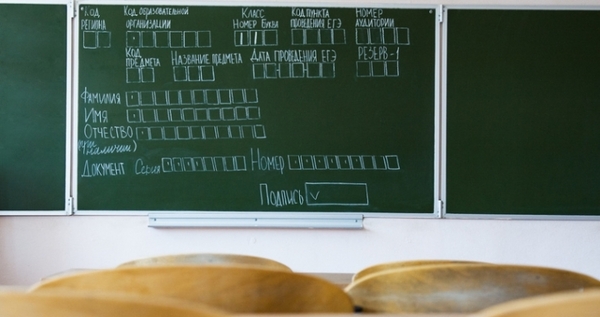 Код региона Код образовательной организации Класс Номер Буква Код пункта проведения ЕГЭ Номер аудитории
Код предмета Название предмета Дата проведения ЕГЭ Резерв-1
Фамилия
Имя
Отчество
(при наличии)
Документ Серия Номер
Подпись